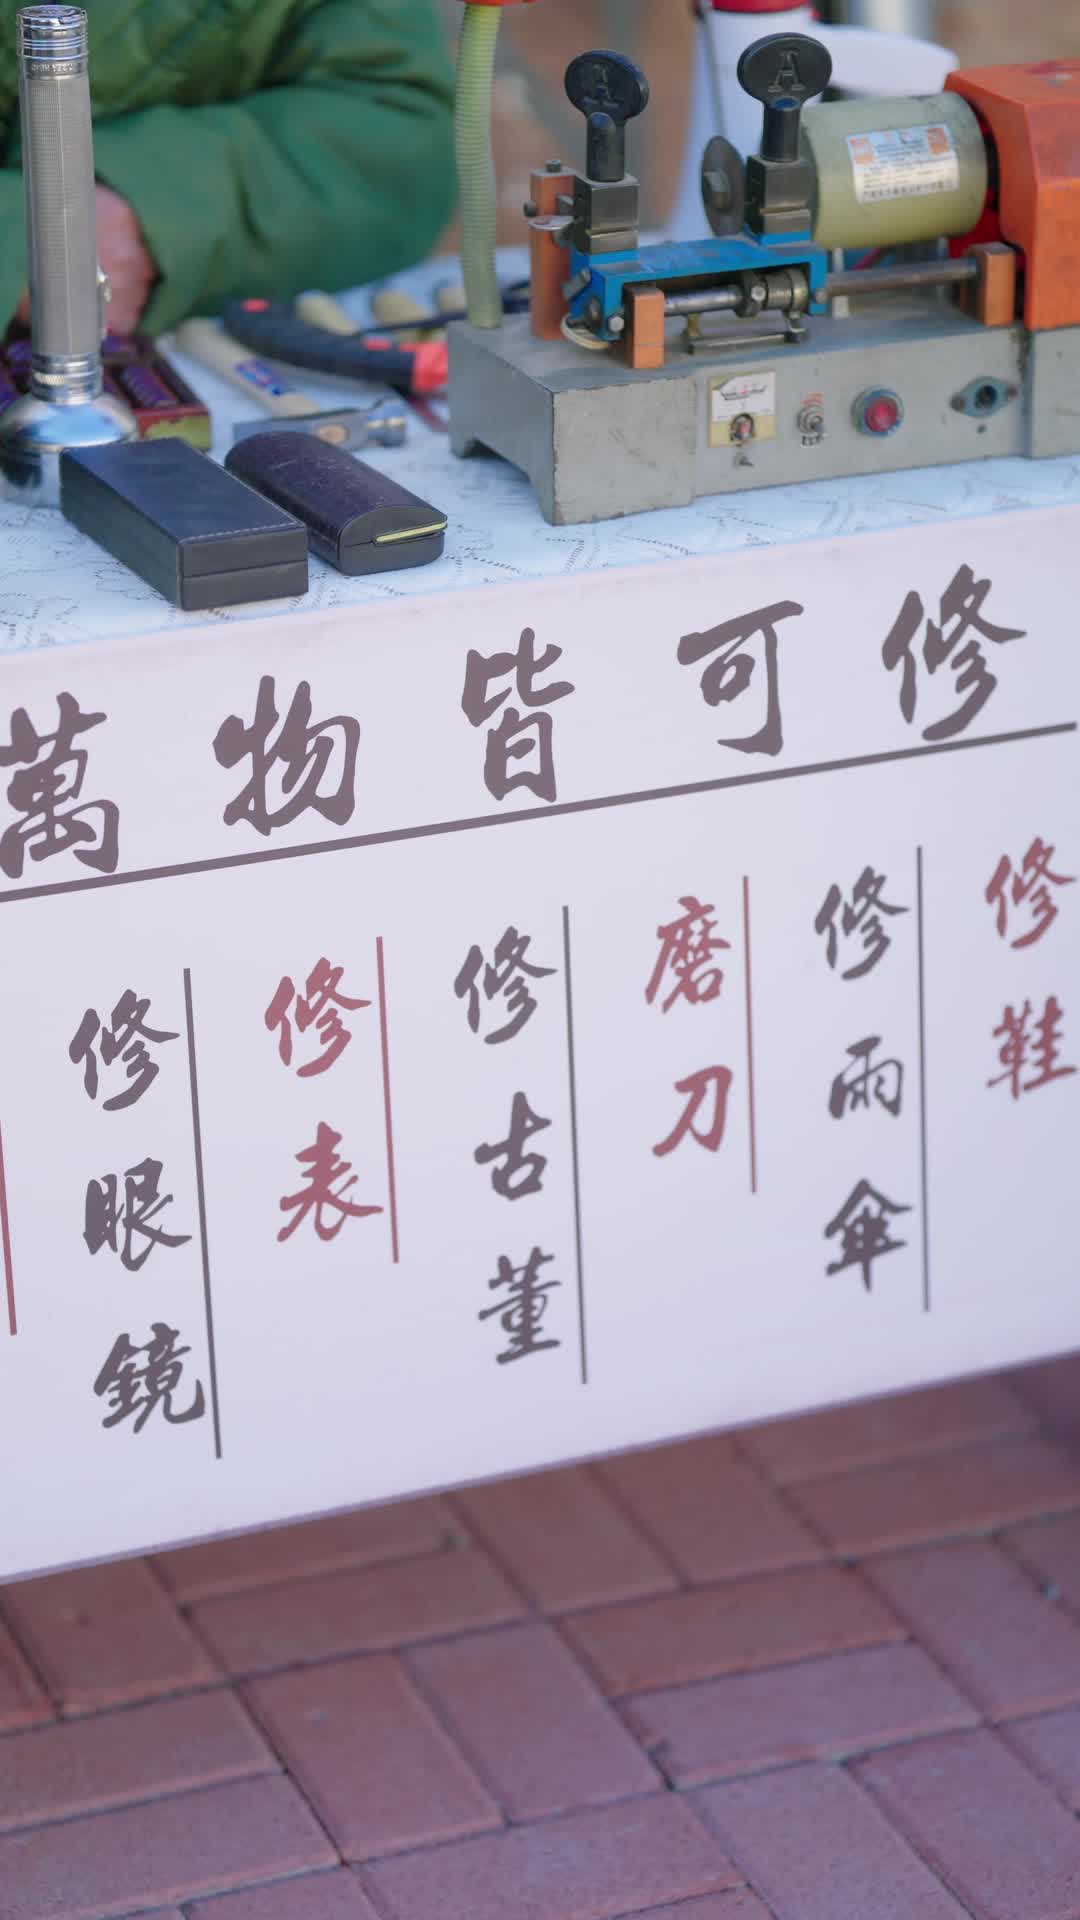 萬物皆可修
修鞋
修雨傘
磨刀
修古董
修表
修眼鏡
A
A